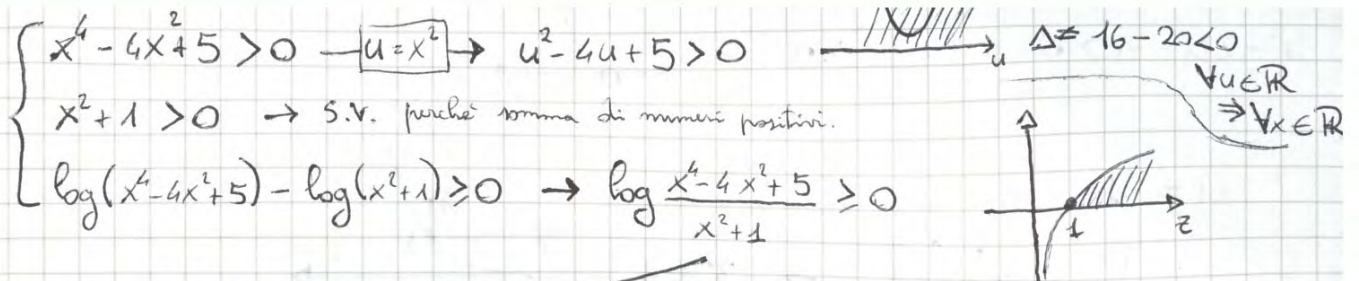 x⁴ - 4x² + 5 > 0 — u = x² → u² - 4u + 5 > 0 u Δ = 16 - 20 < 0
∀u ∈ ℝ
⇒ ∀x ∈ ℝ
x² + 1 > 0 → S.V. perché somma di numeri positivi.
log(x⁴ - 4x² + 5) - log(x² + 1) ≥ 0 → log (x⁴ - 4x² + 5)/(x² + 1) ≥ 0
1 z